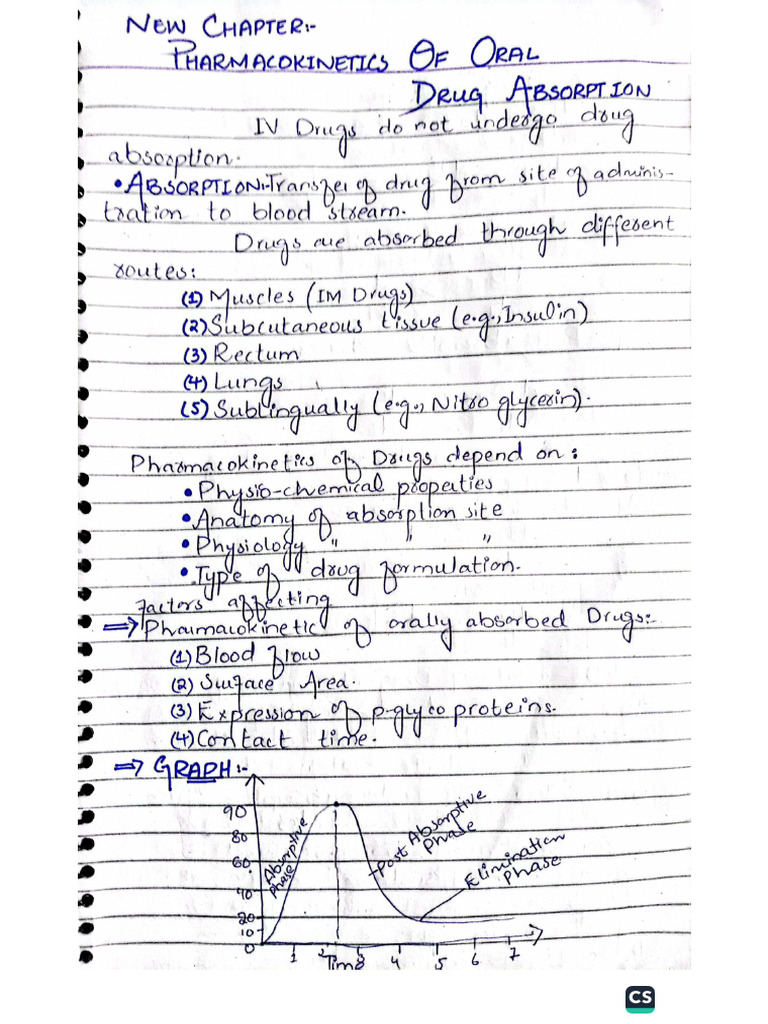 NEW CHAPTER:-
PHARMACOKINETICS OF ORAL
DRUG ABSORPTION
IV Drugs do not undergo drug
absorption.
• ABSORPTION:-Transfer of drug from site of adminis-
tration to blood stream.
Drugs are absorbed through different
routes:
(1) Muscles (IM Drugs)
(2) Subcutaneous tissue (e.g., Insulin)
(3) Rectum
(4) Lungs
(5) Sublingually (e.g., Nitro glycerin).
Pharmacokinetics of Drugs depend on:
• Physio-chemical properties
• Anatomy of absorption site
• Physiology " " "
• Type of drug formulation.
Factors affecting
⇒ Pharmacokinetic of orally absorbed Drugs:-
(1) Blood flow
(2) Surface Area.
(3) Expression of p-glyco proteins.
(4) Contact time.
⇒ GRAPH:-
90
80
60
40
20
10
0
Absorptive
Phase
Post Absorptive
Phase
Elimination
Phase
1 2 3 4 5 6 7
Time
CS